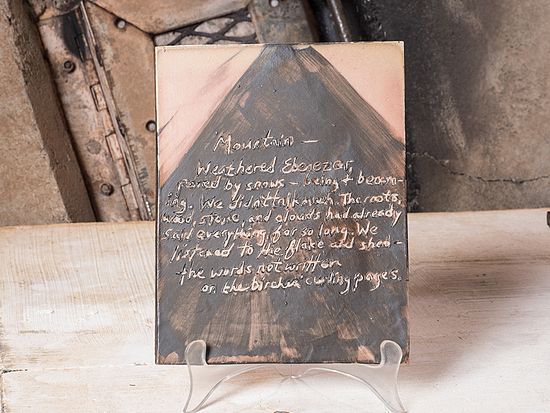 Mountain —
Weathered Ebenezer,
pared by snows – being & becom-
ing. We didn't talk much. The roots,
wood, stone, and clouds had already
said everything for so long. We
listened to the flake and shed –
the words not written
on the birches' curling pages.